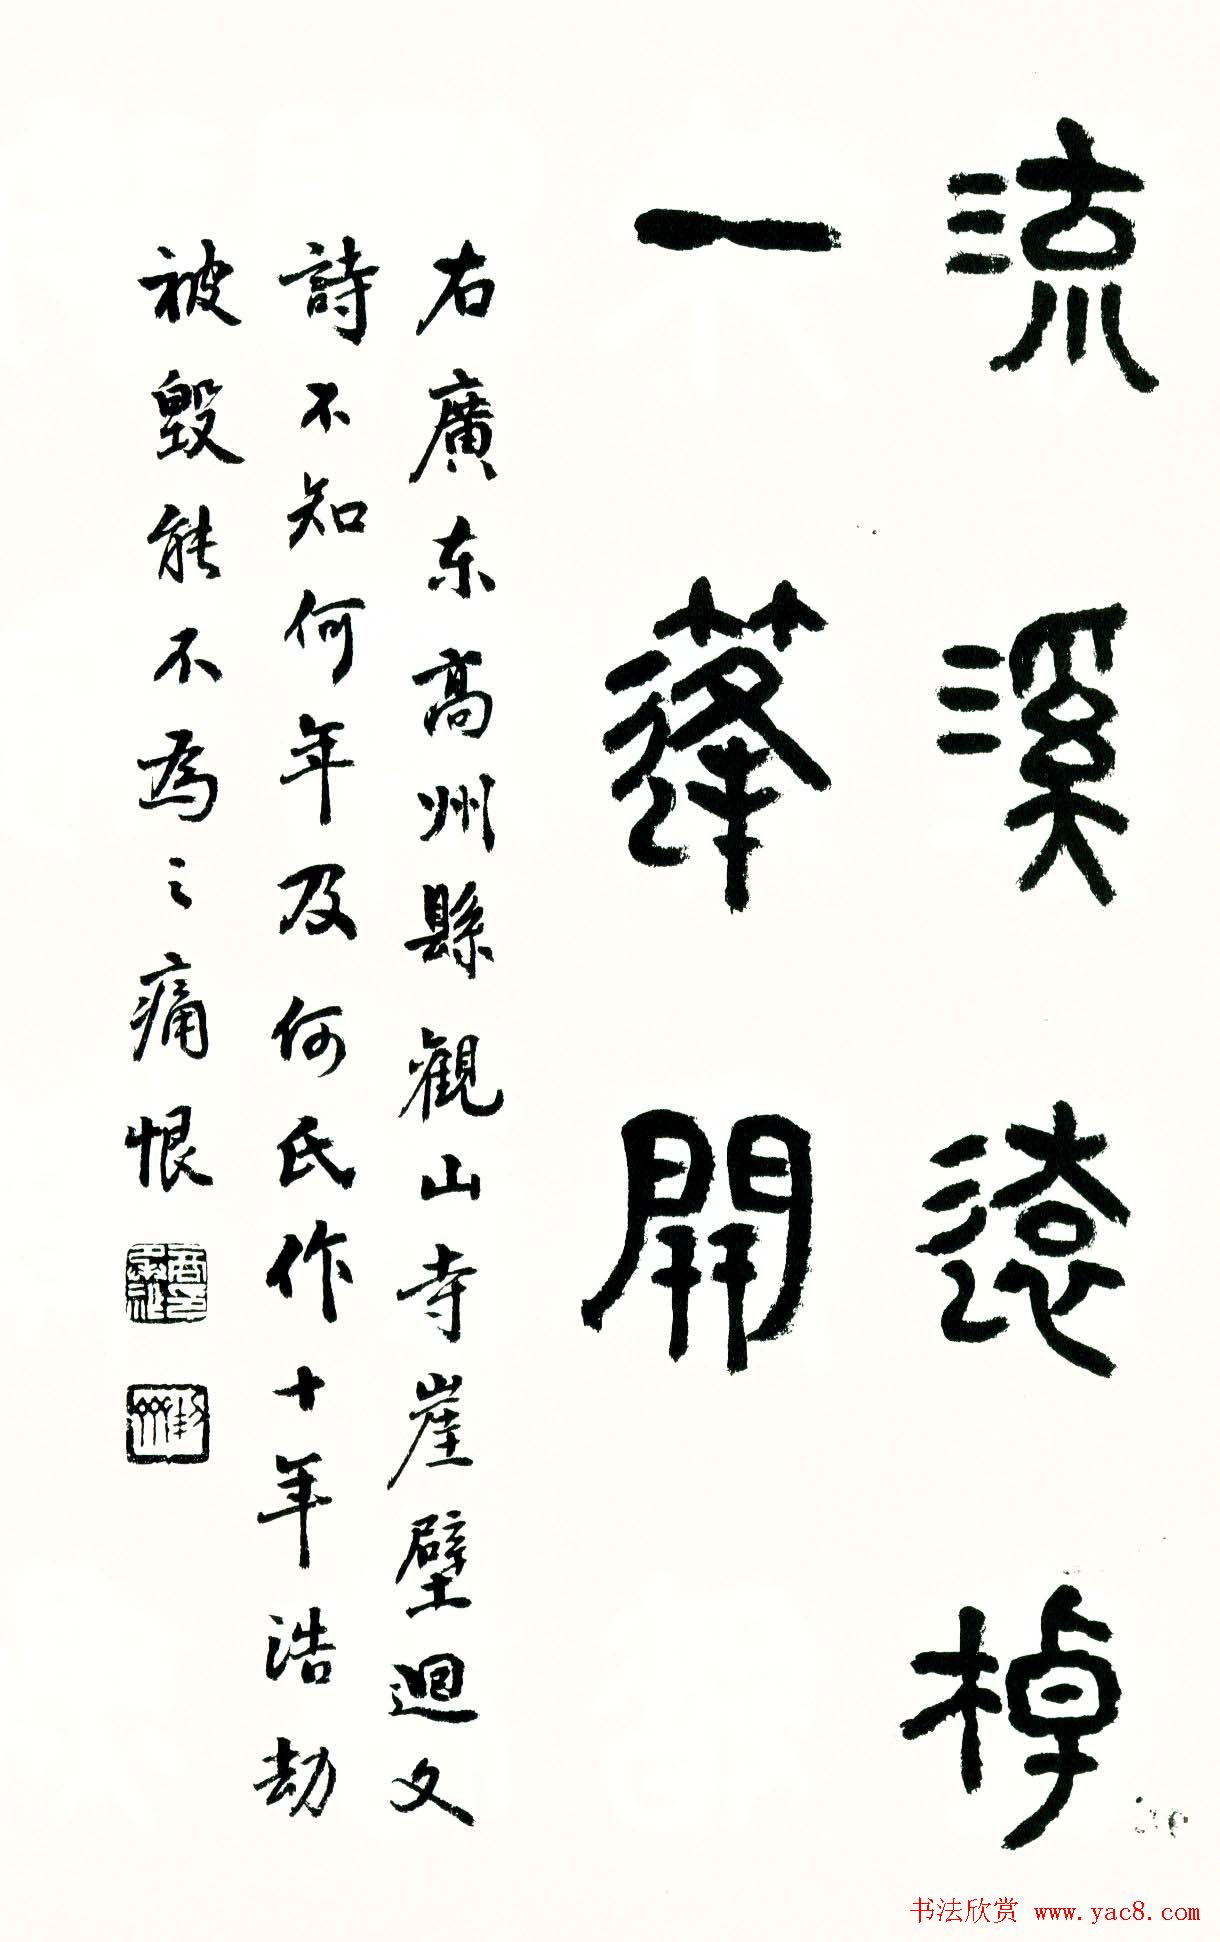 流溪遠棹
一蓬開
右廣东高州縣觀山寺崖壁迴文
詩不知何年及何氏作十年浩劫
被毀能不為之痛恨
书法欣赏 www.yac8.com